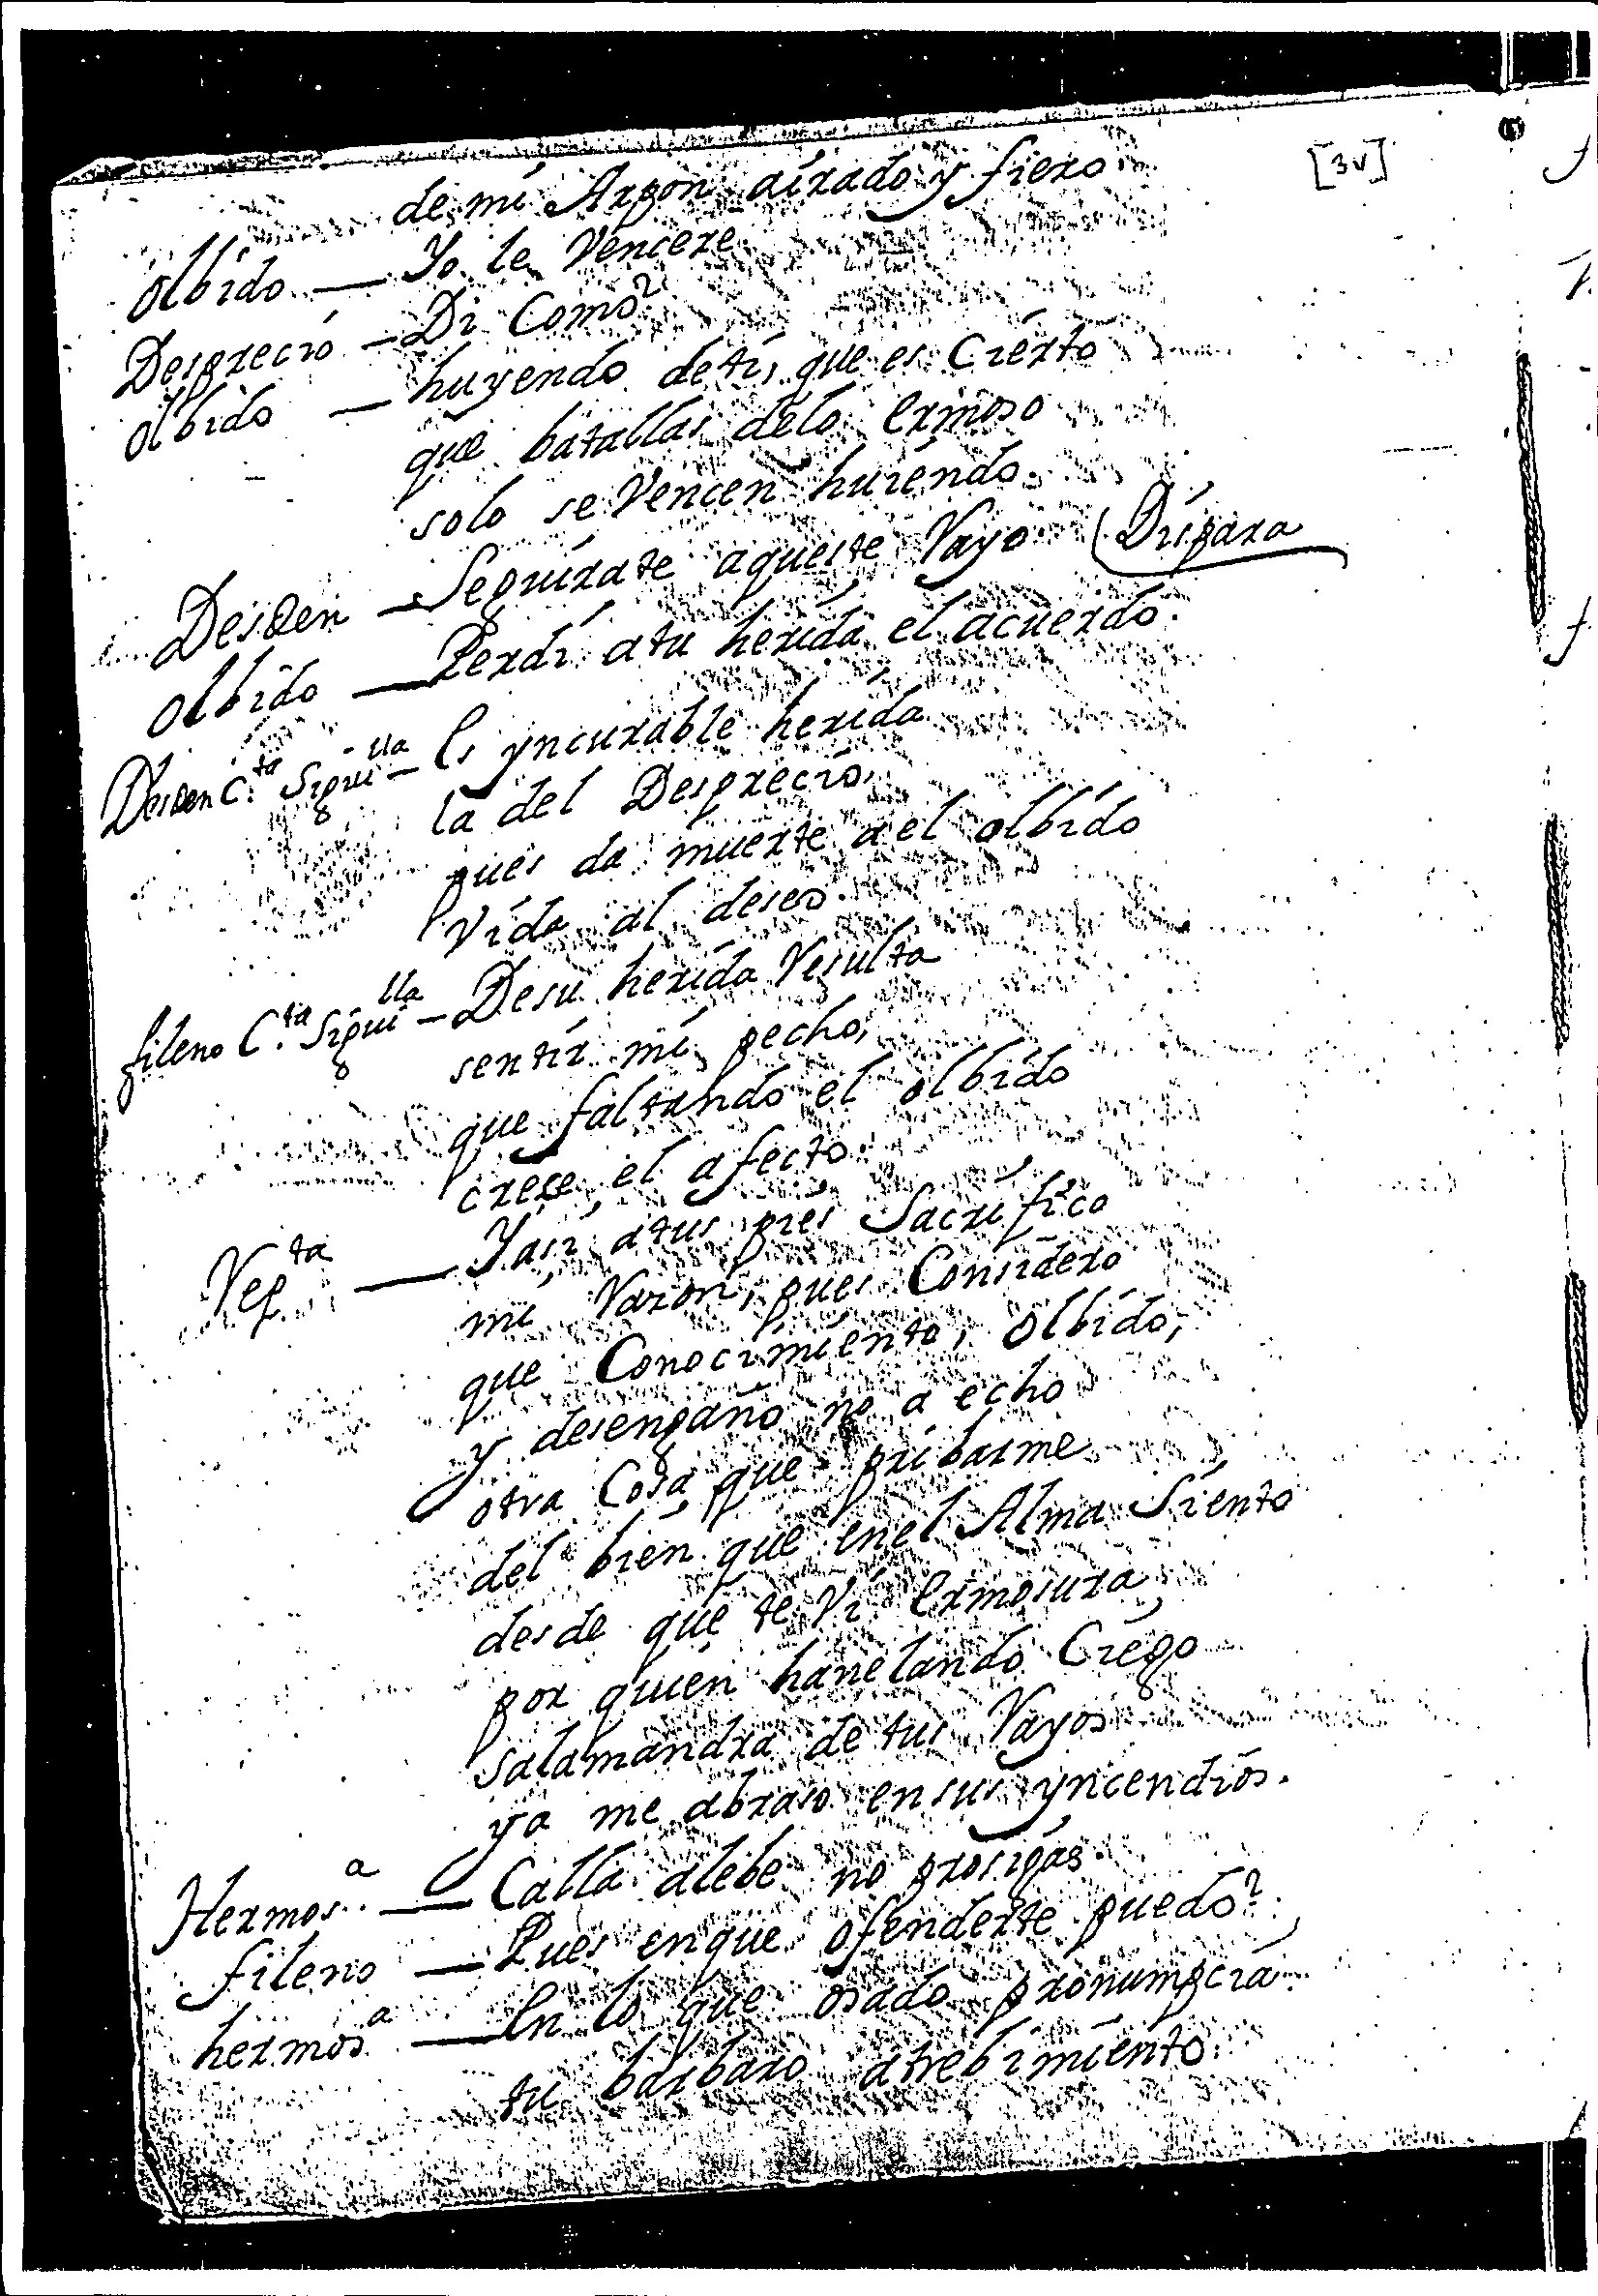 [3v]
de mi Arpon airado y fiero
Olbido — Yo le Vencere
Desprecio — Di Como?
Olbido — huyendo deti, que es Cierto
que batallas delo Ermoso
solo se Vencen huiendo.
Desden — Seguirate aqueste Rayo (Dispara
Olbido — Perdi atu herida el acuerdo.
Desden C.ta Sigui.lla — Es yncurable herida
la del Desprecio,
pues da muerte a el olbido
Vida al deseo.
fileno C.ta Sigui.lla — Desu herida Resulta
sentir mi pecho,
que faltando el olbido
crese el afecto.
Rep.ta — Yasi atus pies Sacrifico
mi Razon, pues Considero
que Conocimiento, Olbido,
y desengaño no a echo
otra Cosa que pribarme
del bien que enel Alma Siento
desde que te Vi Ermosura,
por quien hanelando Ciego
salamandra de tus Rayos
ya me abraso ensus yncendios.
Hermos.a — Calla alebe no prosigas.
fileno — Pues enque ofenderte puedo?
hermos.a — En lo que osado pronumpcia
tu barbaro atrebimiento.